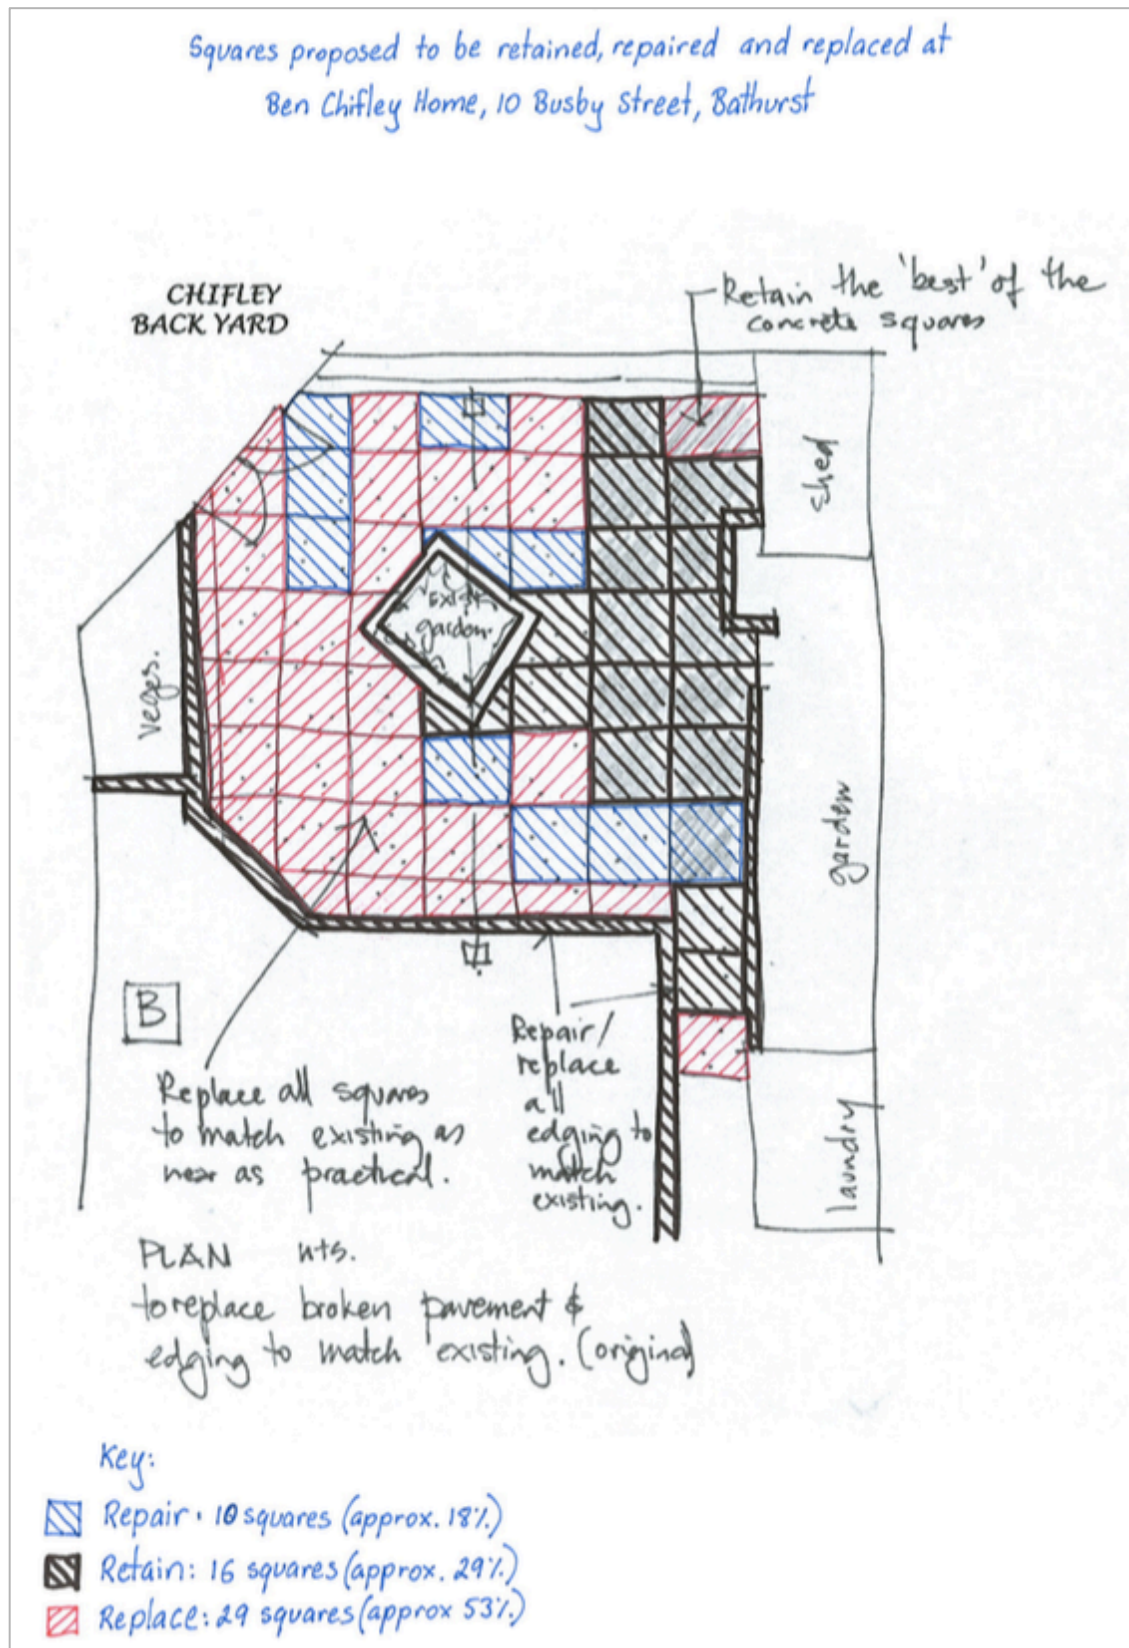 Squares proposed to be retained, repaired and replaced at
Ben Chifley Home, 10 Busby Street, Bathurst
CHIFLEY
BACK YARD
Retain the 'best' of the
concrete squares
shed
Exist
garden
veges.
garden
B
Replace all squares
to match existing as
near as practical.
Repair/
replace
all
edging to
match
existing.
laundry
PLAN nts.
to replace broken pavement &
edging to match existing. (original)
Key:
Repair: 10 squares (approx. 18%)
Retain: 16 squares (approx. 29%)
Replace: 29 squares (approx 53%)